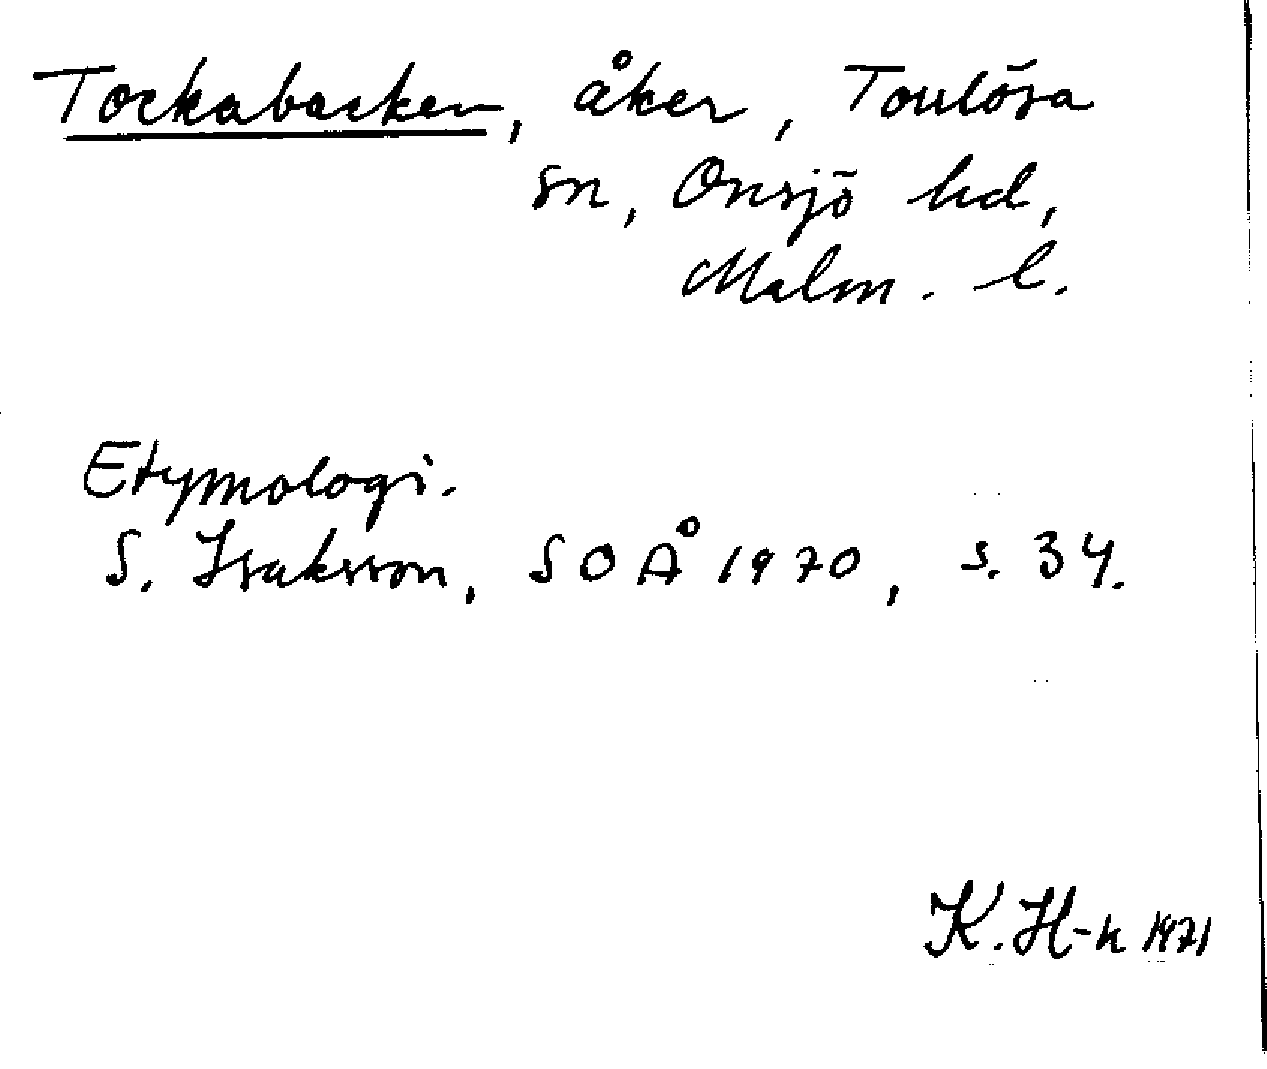 Tockabacken, åker, Torrlösa
sn, Onsjö hd,
Malm. l.
Etymologi.
S. Isaksson, SOÅ 1970, s. 34.
K. H-k 1971